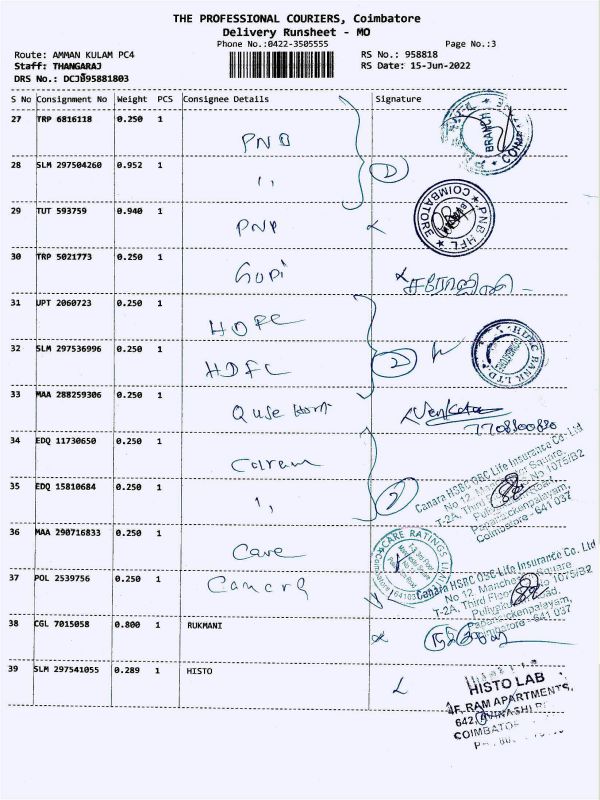 THE PROFESSIONAL COURIERS, Coimbatore
Delivery Runsheet - MO
Phone No.:0422-3505555
Page No.:3
Route: AMMAN KULAM PC4
RS No.: 958818
Staff: THANGARAJ
RS Date: 15-Jun-2022
DRS No.: DCJB95881803
S No Consignment No Weight PCS Consignee Details Signature
27 TRP 6816118 0.250 1 PNB
BRANCH
28 SLM 297504260 0.952 1 ,, 2
29 TUT 593759 0.940 1 PNB
PNB HFL ★ COIMBATORE ★
30 TRP 5021773 0.250 1 Gopi சரோஜினி
31 UPT 2060723 0.250 1 HDFC
32 SLM 297536996 0.250 1 HDFC 2
HDFC BANK LTD.
33 MAA 288259306 0.250 1 Venkata
7708800880
34 EDQ 11730650 0.250 1
35 EDQ 15810684 0.250 1 ,, 2
Canara HSBC OBC Life Insurance Co. Ltd
No 12, Manchester Square,
T-2A, Third Floor, Door No 1075/B2
Puliyakulam Road,
Papanaickenpalayam,
Coimbatore - 641 037
36 MAA 290716833 0.250 1 Care
CARE RATINGS LIMITED
37 POL 2539756 0.250 1 Canara
Canara HSBC OBC Life Insurance Co. Ltd
No 12, Manchester Square
T-2A, Third Floor, Door No 1075/B2
Puliyakulam Road,
Papanaickenpalayam,
Coimbatore - 641 037
38 CGL 7015058 0.800 1 RUKMANI
39 SLM 297541055 0.289 1 HISTO
HISTO LAB
4F, RAM APARTMENTS,
642, AVINASHI
COIMBATO